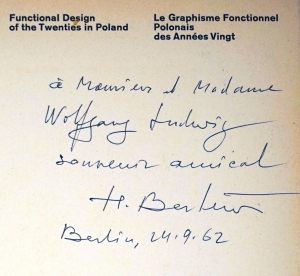 Functional Design
of the Twenties in Poland
Le Graphisme Fonctionnel
Polonais
des Années Vingt
à Monsieur et Madame
Wolfgang Ludwig
souvenir amical
H. Berlewi
Berlin, 24.9.62